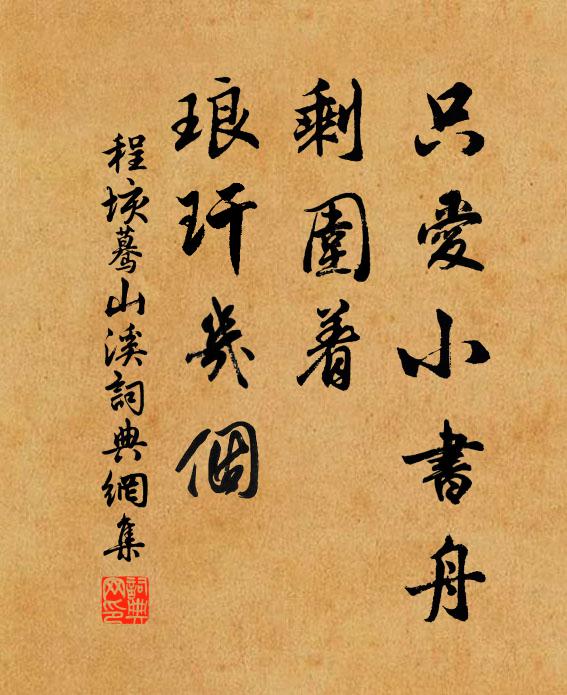 只愛小書舟
剩圍着
琅玕幾個
程垓驀山溪詞典網集
詞典网印